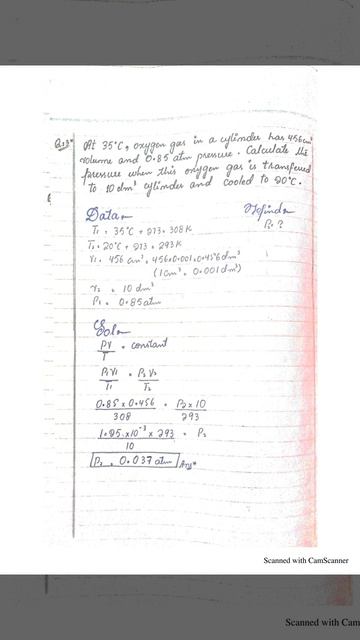 Q.13* At 35°C, oxygen gas in a cylinder has 456cm³
volume and 0.85 atm pressure. Calculate the
pressure when this oxygen gas is transferred
to 10 dm³ cylinder and cooled to 20°C.
Data
To find
T₁ = 35°C + 273 = 308K
P₂ ?
T₂ = 20°C + 273 = 293K
V₁ = 456 cm³ = 456×0.001 = 0.456 dm³
(1cm³ = 0.001 dm³)
V₂ = 10 dm³
P₁ = 0.85 atm
Sol
PV/T = constant
P₁V₁/T₁ = P₂V₂/T₂
0.85 x 0.456/308 = P₂ x 10/293
1.25 x10⁻³ x 293/10 = P₂
P₂ = 0.037 atm Ans*
Scanned with CamScanner
Scanned with Cam